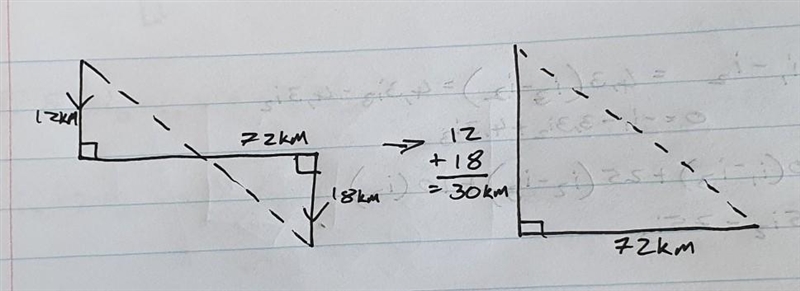 12km
72km
18km
12
+ 18
= 30km
72km